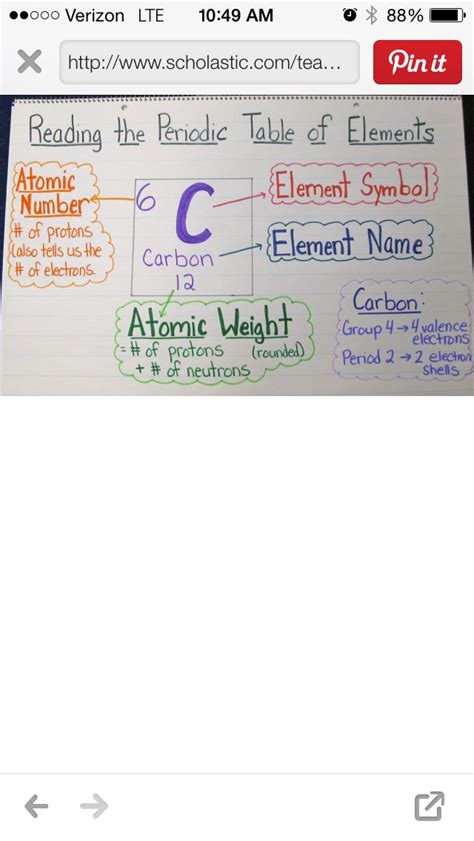 Verizon LTE 10:49 AM 88%
http://www.scholastic.com/tea...
Pin it
Reading the Periodic Table of Elements
Atomic
Number
# of protons
(also tells us the
# of electrons.
6
C
Carbon
12
Element Symbol
Element Name
Atomic Weight
= # of protons (rounded)
+ # of neutrons
Carbon:
Group 4 → 4 valence
electrons
Period 2 → 2 electron
shells